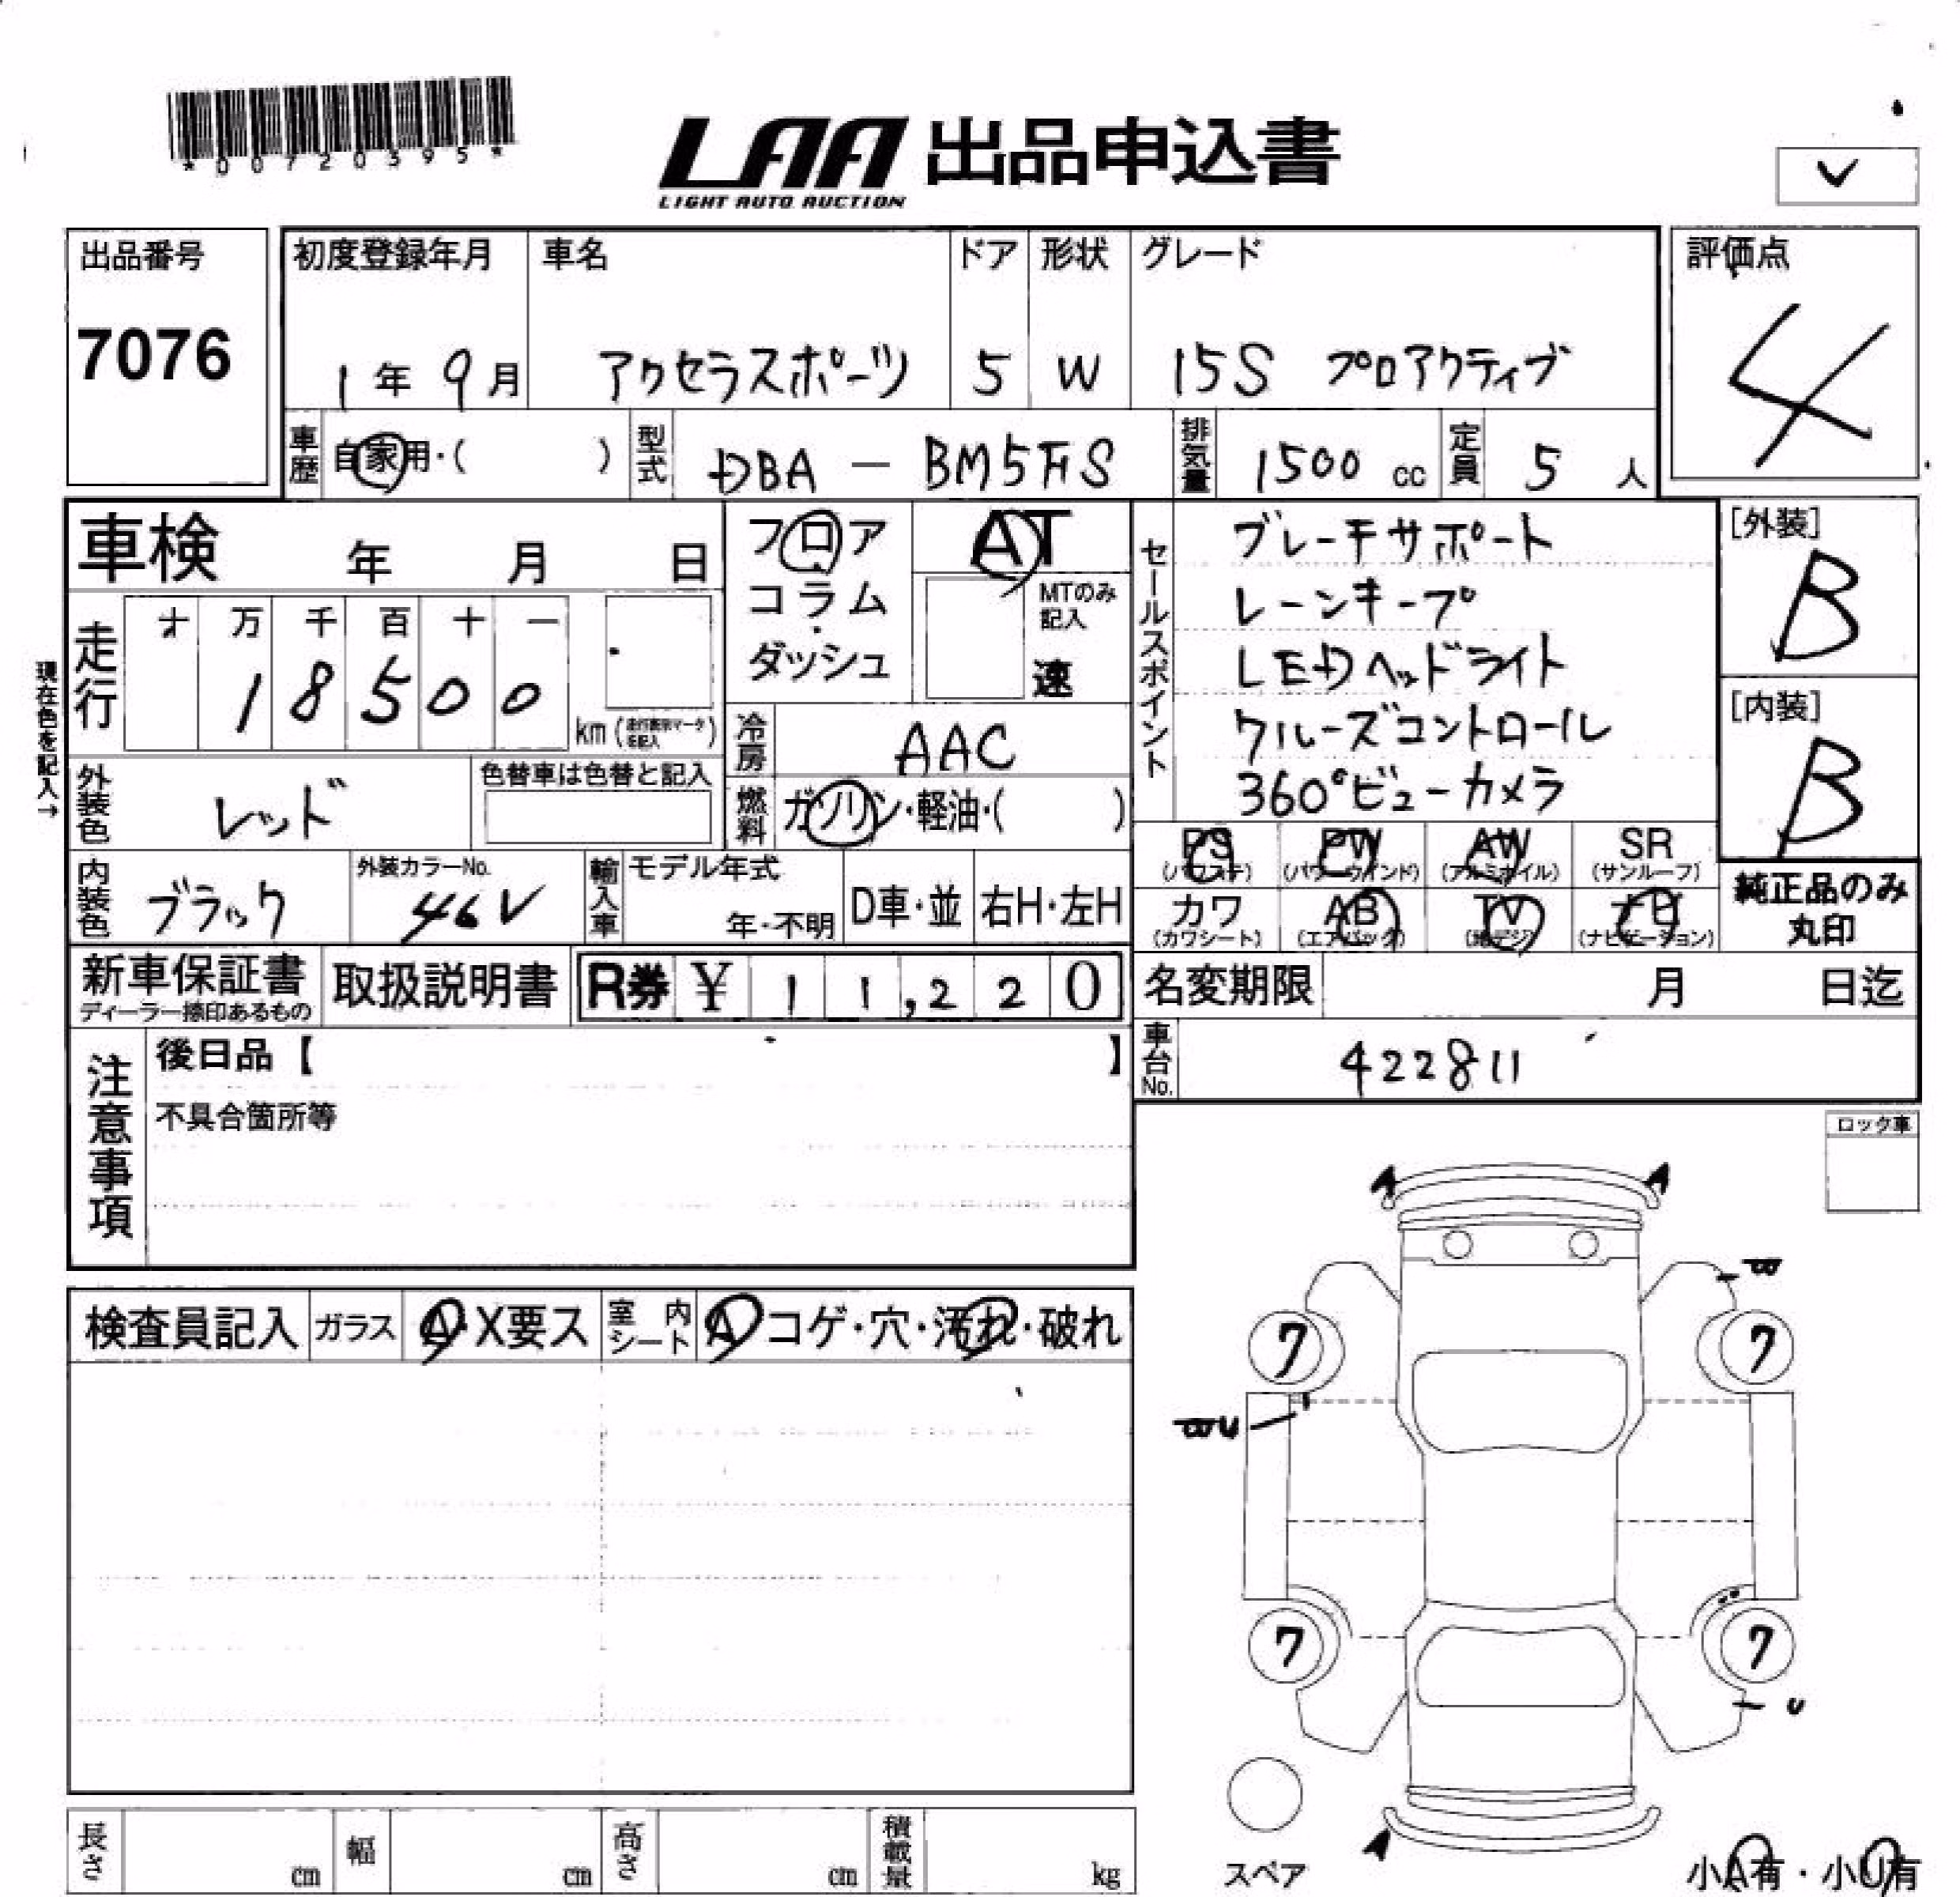 *00720395*
LAA 出品申込書
LIGHT AUTO AUCTION
出品番号
7076
初度登録年月
1年 9月
車名
アクセラスポーツ
ドア
5
形状
W
グレード
15S プロアクティブ
評価点
4
車歴 自家用・( )
型式 DBA - BM5FS
排気量 1500 cc
定員 5 人
車検 年 月 日
フロア
コラム
ダッシュ
AT
MTのみ
記入
速
セールスポイント
ブレーキサポート
レーンキープ
LEDヘッドライト
クルーズコントロール
360°ビューカメラ
[外装]
B
[内装]
B
現在色を記入→
走行
万 千 百 十 一
1 8 5 0 0
km
冷房 AAC
外装色 レッド
色替車は色替と記入
燃料 ガソリン・軽油・( )
PS (パワステ)
PW (パワーウインド)
AW (アルミホイル)
SR (サンルーフ)
内装色 ブラック
外装カラーNo.
46V
輸入車
モデル年式
年・不明
D車・並
右H・左H
カワ (カワシート)
AB (エアバック)
TV (地デジ)
ナビ (ナビゲーション)
純正品のみ
丸印
新車保証書
ディーラー捺印あるもの
取扱説明書
R券 ¥ 1 1,2 2 0
名変期限 月 日迄
注意事項
後日品【 】
不具合箇所等
車台No.
422811
ロック車
検査員記入
ガラス A・X要ス
室内シート A コゲ・穴・汚れ・破れ
7
7
7
7
U
スペア
長さ cm
幅 cm
高さ cm
積載量 kg
小A有・小U有